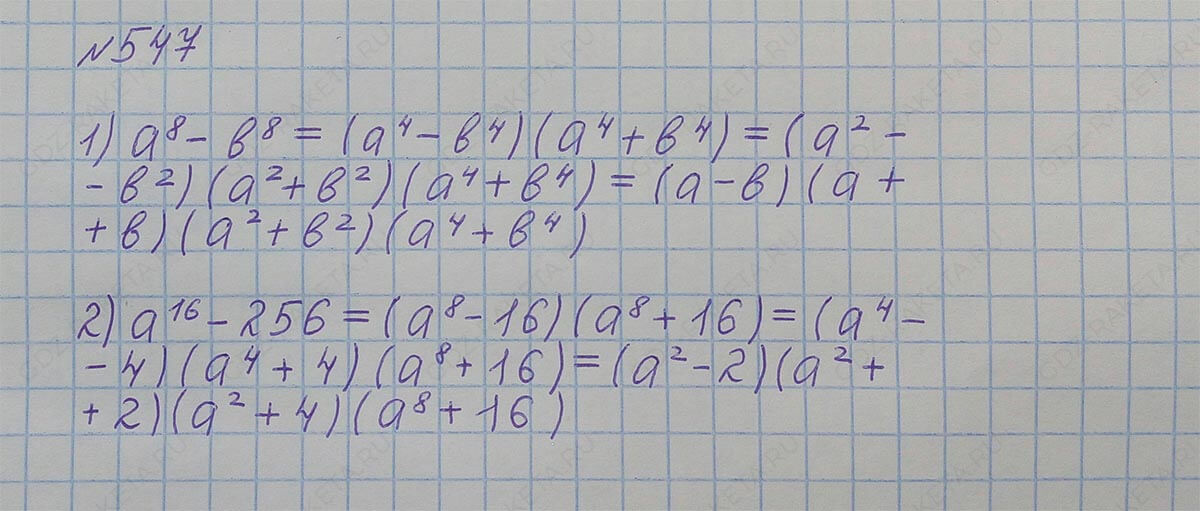 №547
1) a⁸ - в⁸ = (a⁴ - в⁴)(a⁴ + в⁴) = (a² -
- в²)(a² + в²)(a⁴ + в⁴) = (a - в)(a +
+ в)(a² + в²)(a⁴ + в⁴)
2) a¹⁶ - 256 = (a⁸ - 16)(a⁸ + 16) = (a⁴ -
- 4)(a⁴ + 4)(a⁸ + 16) = (a² - 2)(a² +
+ 2)(a² + 4)(a⁸ + 16)